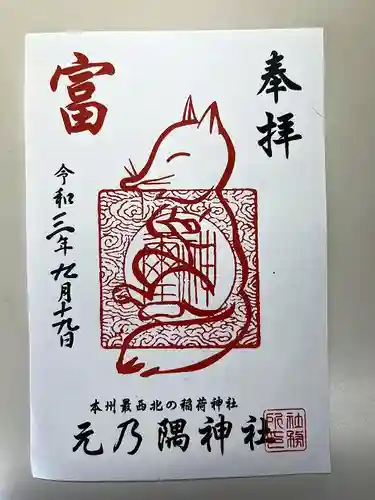 奉拝
富
令和三年九月十九日
本州最西北の稲荷神社
元乃隅神社
社務所之印